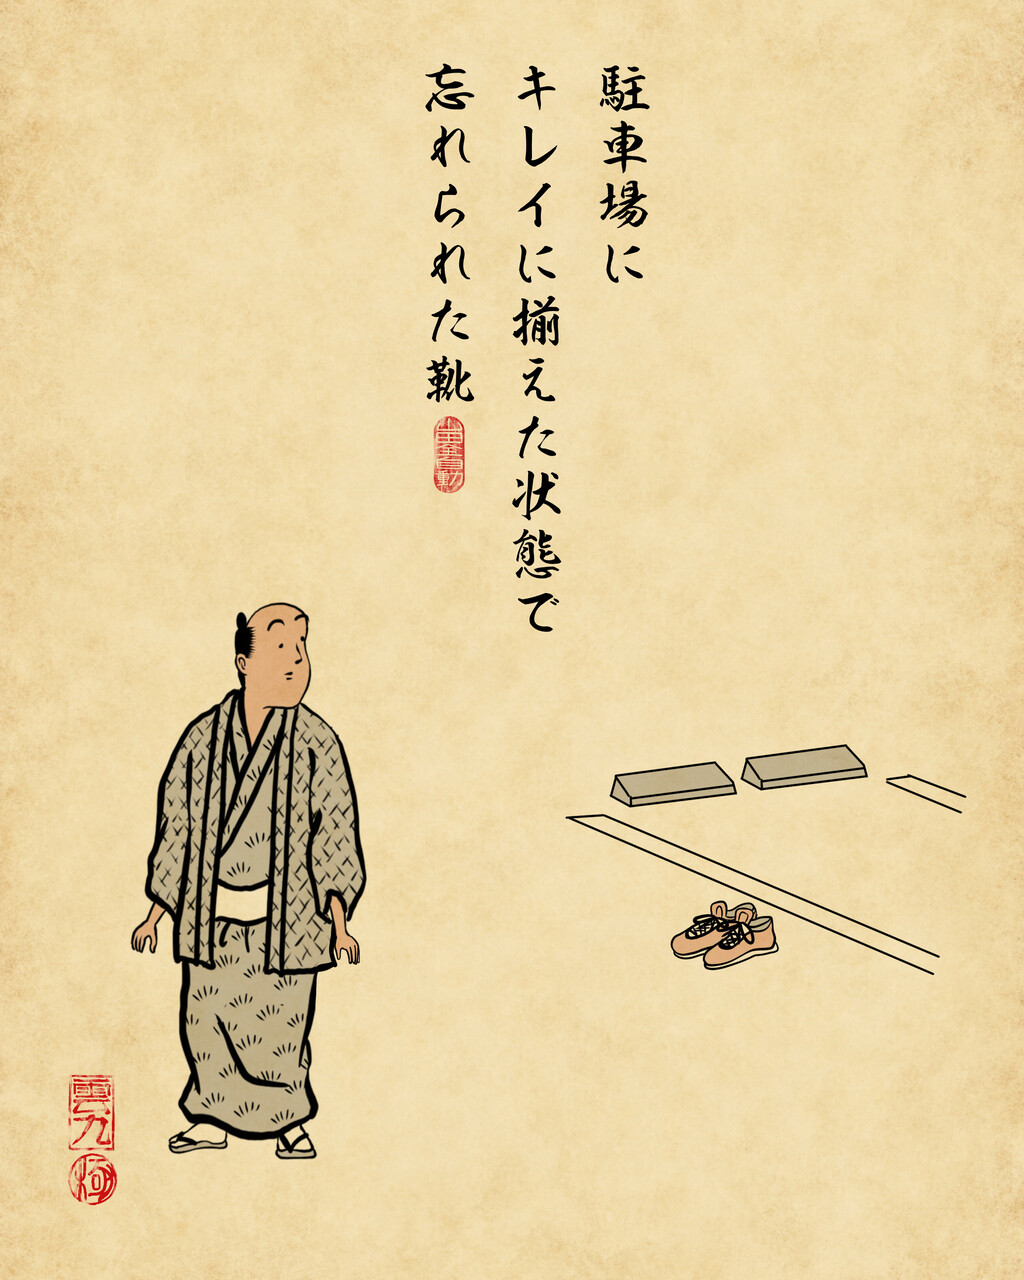 駐車場に
キレイに揃えた状態で
忘れられた靴
山田全自動